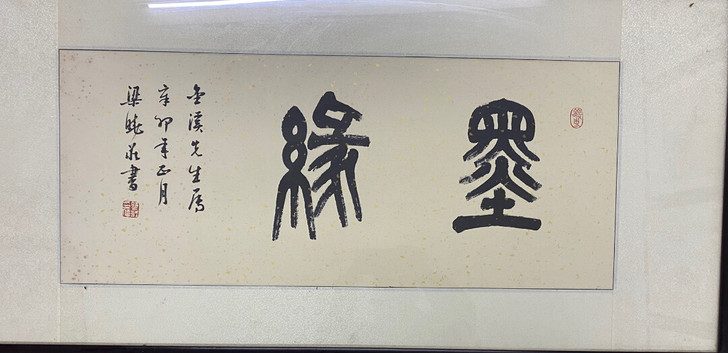 墨緣
金溪先生属
辛卯年正月
梁曉莊書